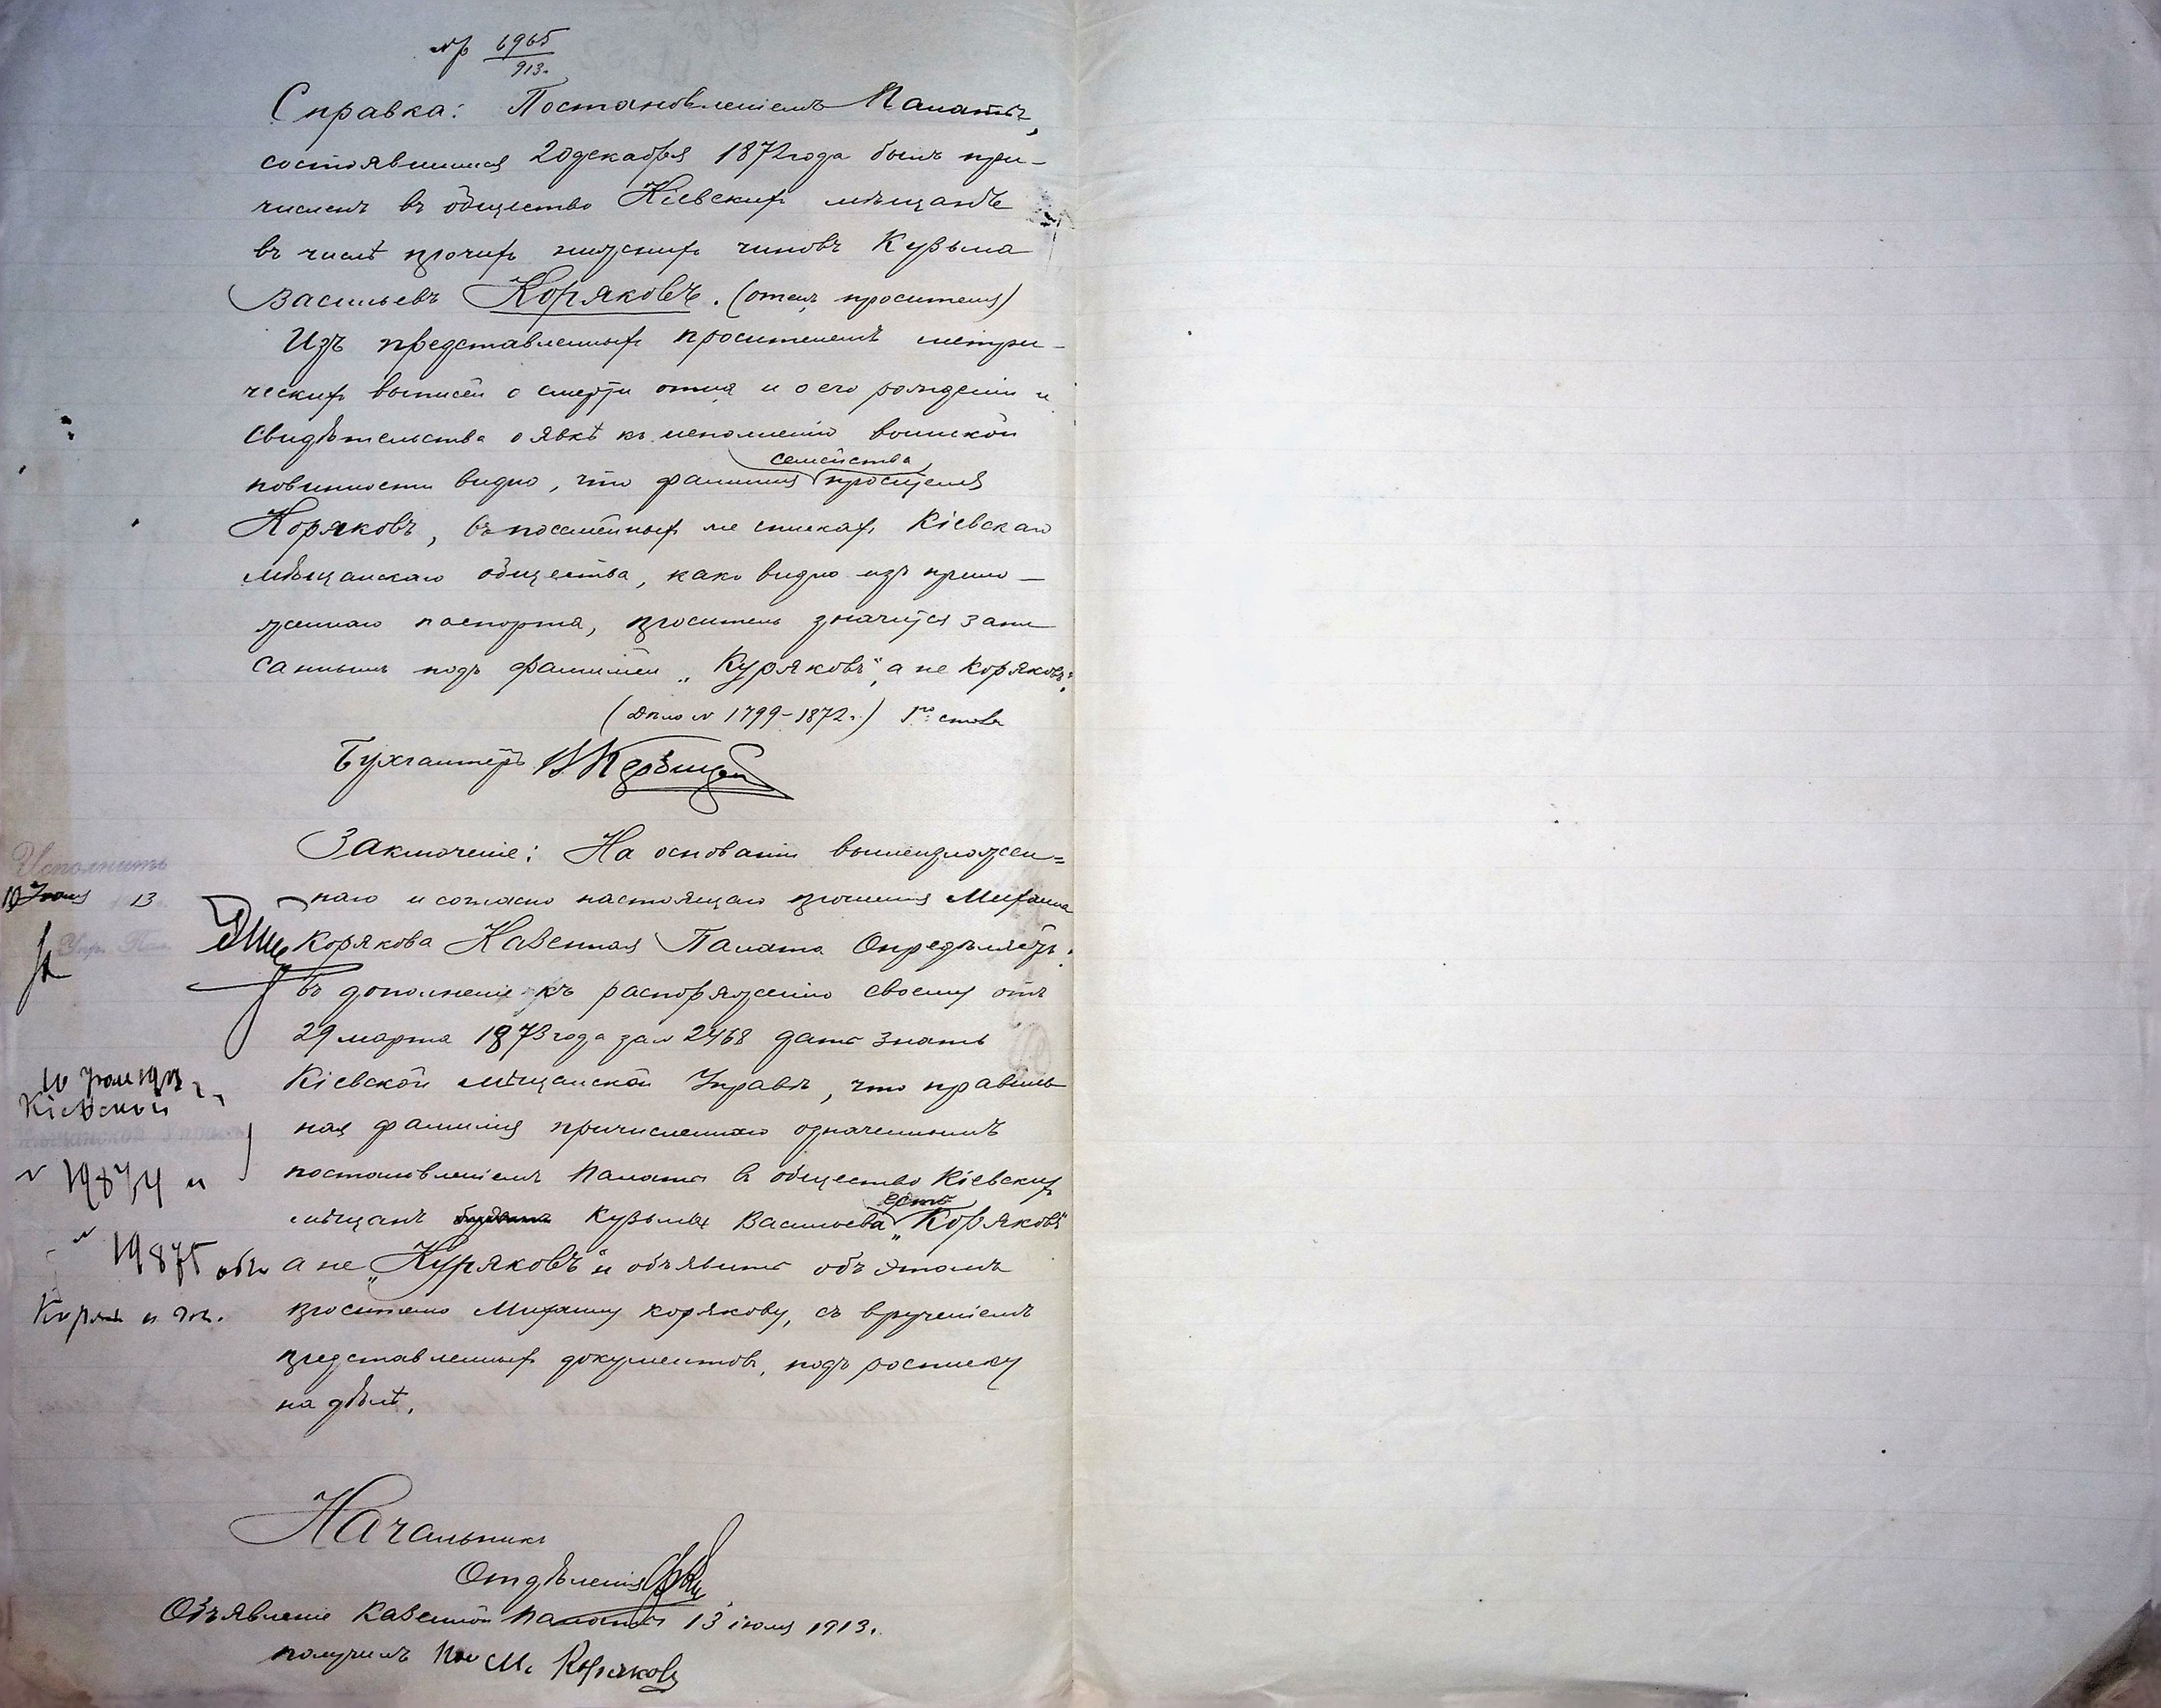 № 6965
913.
Справка: Постановленіемъ Палаты,
состоявшимся 20 декабря 1872 года былъ при-
численъ въ общество Кіевскихъ мѣщанъ
въ числѣ прочихъ нижнихъ чиновъ Кузьма
Васильевъ Коряковъ. (отецъ просителя)
Изъ представленныхъ просителемъ метри-
ческихъ выписей о смерти отца и о его рожденіи и
свидѣтельства о явкѣ къ исполненію воинской
семейства
повинности видно, что фамилія просителя
Коряковъ, въ посемейныхъ же спискахъ Кіевскаго
мѣщанскаго общества, како видно изъ прило-
женнаго паспорта, проситель значится запи
саннымъ подъ фамиліей „Куряковъ", а не Коряковъ".
(Дѣло № 1799-1872 г.) 1го стола
Бухгалтеръ
Заключеніе: На основаніи вышеизложен=
наго и согласно настоящаго прошенія Михаила
Корякова Казенная Палата Опредѣляетъ:
въ дополненіе къ распоряженію своему отъ
29 марта 1873 года за № 2468 дать знать
Кіевской мѣщанской Управѣ, что правиль
ная фамилія причисленнаго означеннымъ
постановленіемъ Палаты въ общество Кіевскихъ
есть
мѣщанъ Кузьмы Васильева „Коряковъ"
а не „Куряковъ" и объявить объ этомъ
просителю Михаилу Корякову, съ врученіемъ
представленныхъ документовъ, подъ росписку
на дѣлѣ.
Исполнить
10 Іюля 13
Упр. Пал.
10 Іюля 1913 г.
Кіевской
Мѣщанской Управѣ
№ 19874 и
№ 19875 объ
Начальникъ
Отдѣленія
Объявленіе Казенной Палаты 13 іюля 1913.
получилъ М. Коряковъ